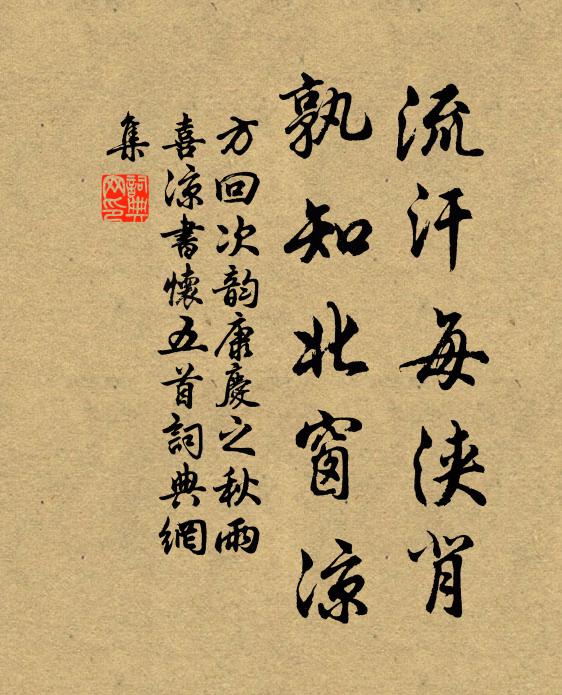 流汗每浹背
孰知北窗凉
方回次韵康慶之秋雨
喜凉書懷五首詞典網
集
詞典
网印